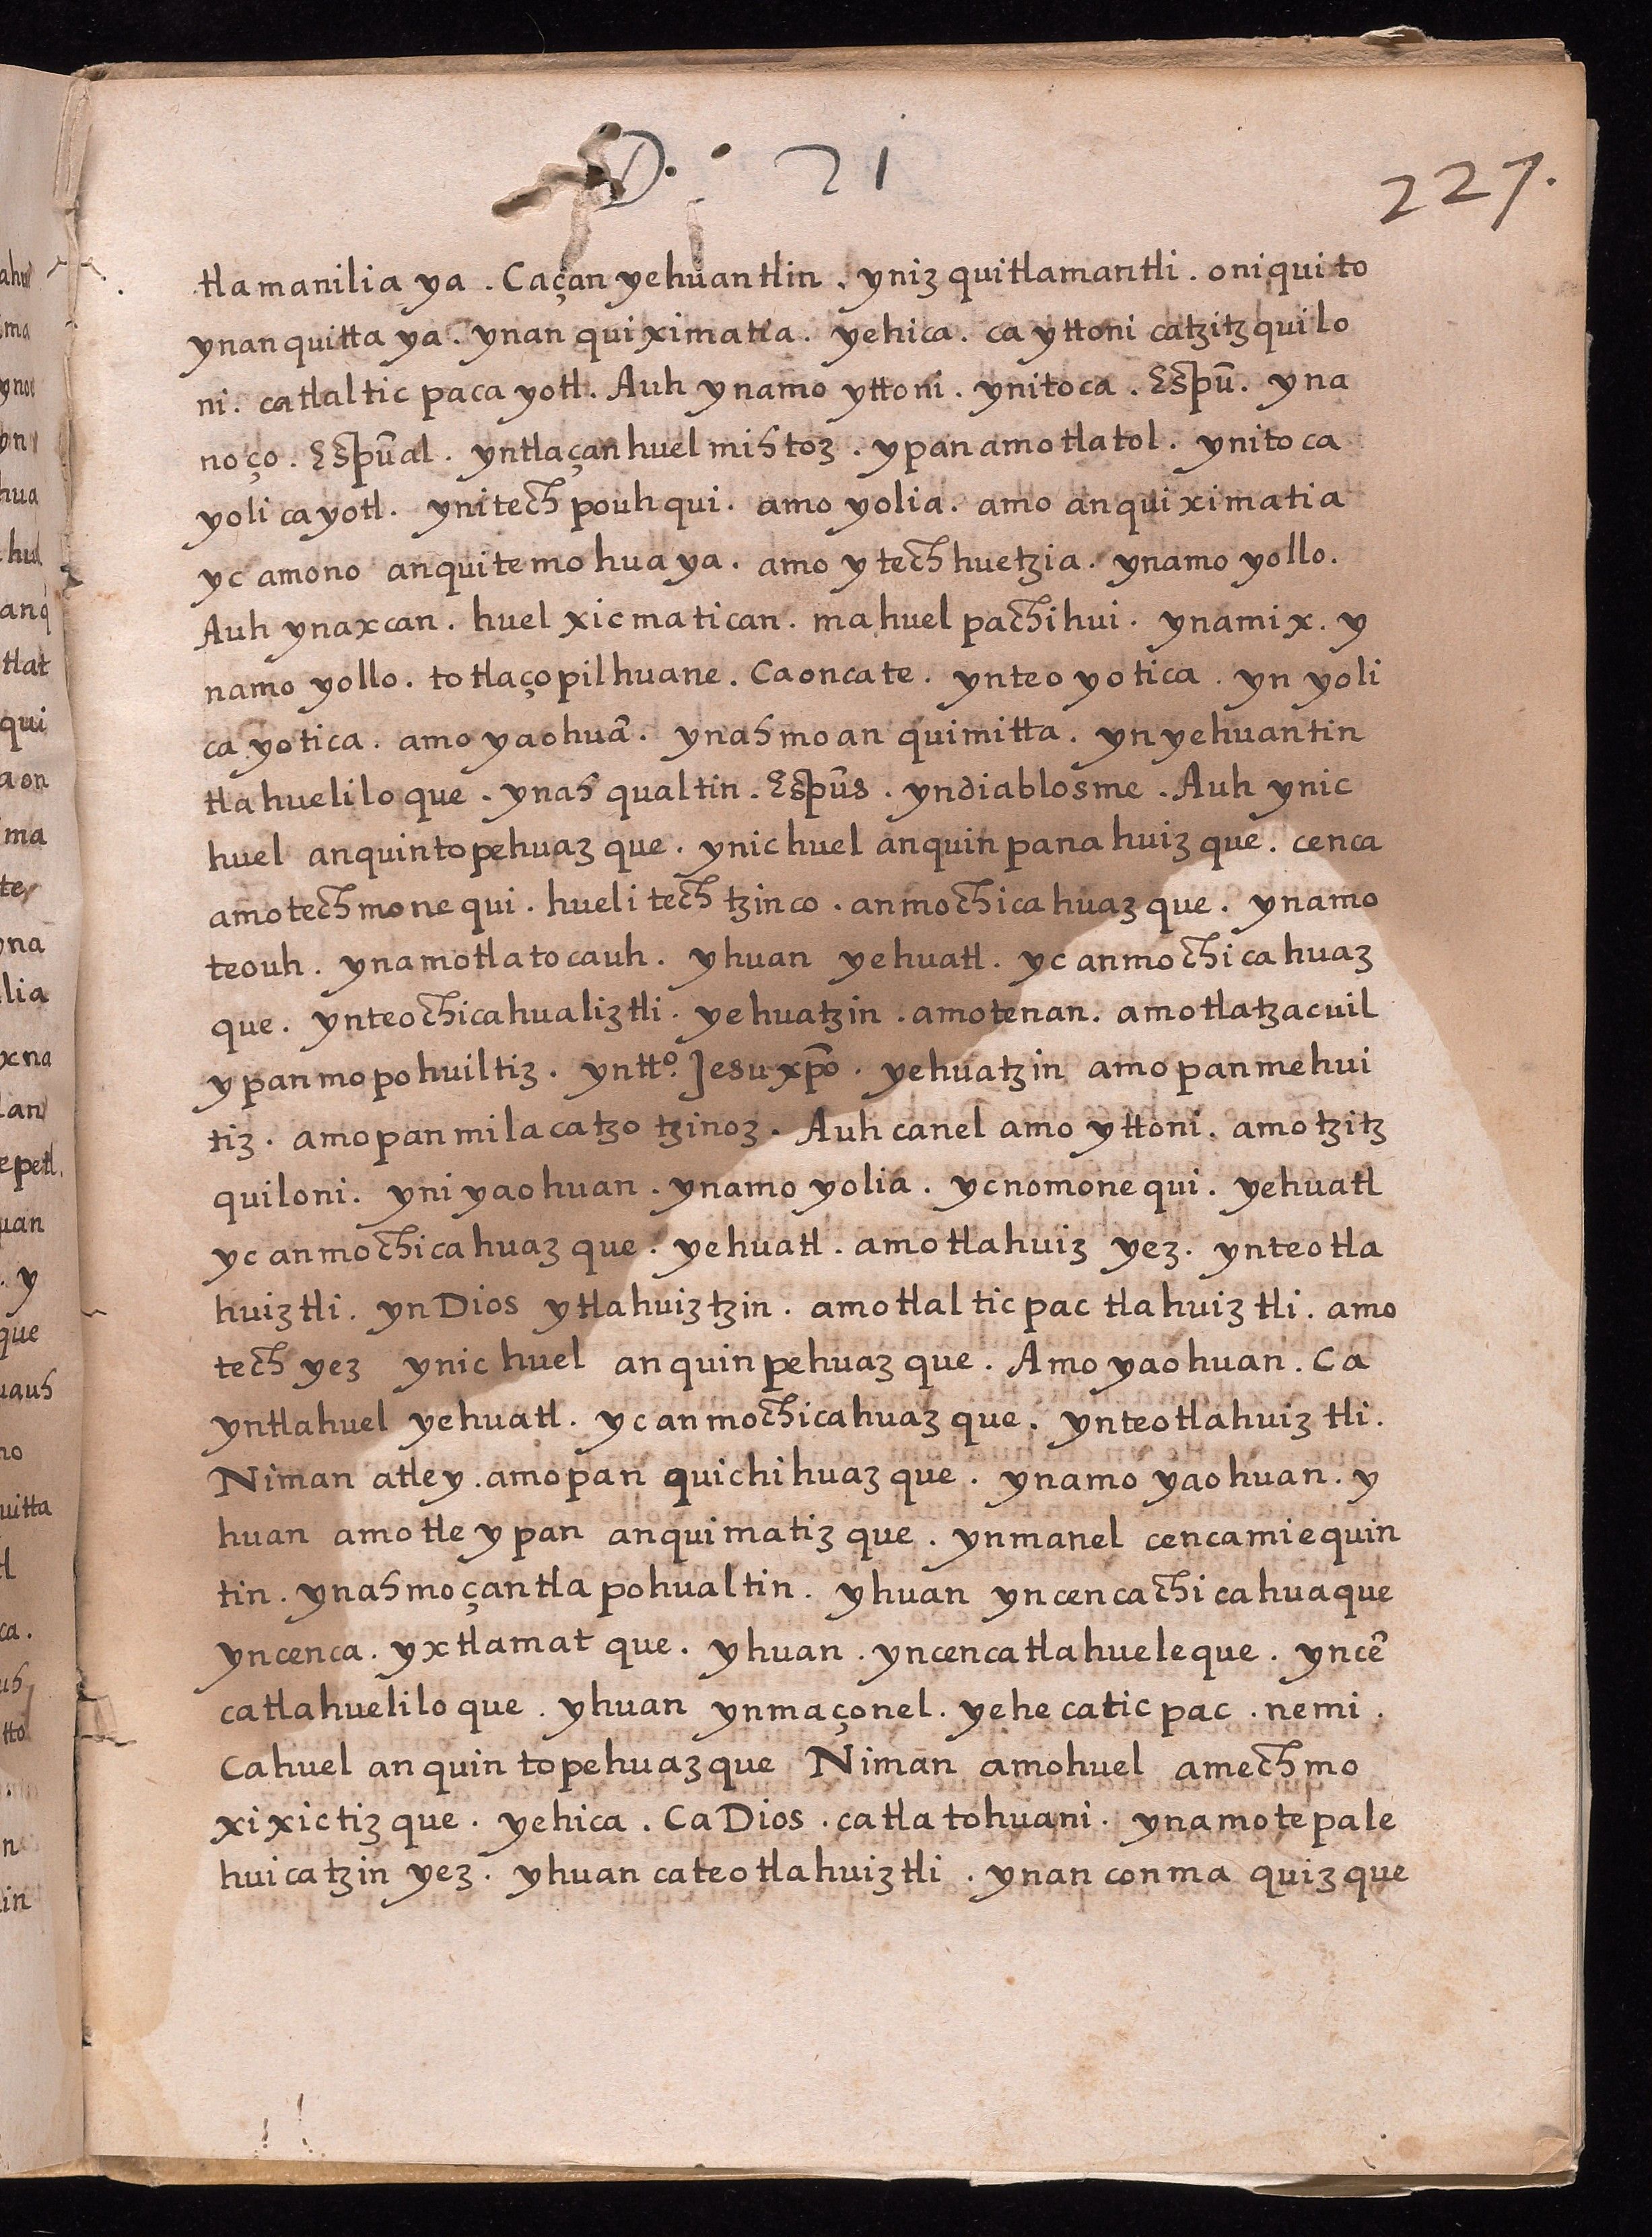 D. 21
227.
tlamanilia ya. Caçan yehuantlin. yniz quitlamantli. oniquito
ynan quitta ya. ynan quiximatia. yehica. ca yttoni catzitzquilo
ni. catlaltic paca yotl. Auh ynamo yttoni. ynitoca. Espũ. yna
noço. Espũal. yntlaçan huel mihtoz. ypan amotlatol. ynitoca
yoli cayotl. ynitech pouhqui. amo yolia. amo anquiximatia
yc amono anquitemo hua ya. amo ytech huetzia. ynamo yollo.
Auh ynaxcan. huel xicmatican. mahuel pachihui. ynamix. y
namo yollo. totlaçopilhuane. Caoncate. ynteo yotica. yn yoli
ca yotica. amo yaohuã. ynahmo an quimitta. yn yehuantin
tlahueliloque. ynah qualtin. Espũs. yndiablosme. Auh ynic
huel anquintopehuaz que. ynic huel anquin panahuiz que. cenca
amotech monequi. huelitech tzinco. anmochicahuaz que. ynamo
teouh. ynamotlatocauh. yhuan yehuatl. yc anmochicahuaz
que. ynteochicahualiztli. yehuatzin. amotenan. amotlatzacuil
ypanmopohuiltiz. yntt͠o. Jesu xp̃o. yehuatzin amopanmehui
tiz. amopanmilacatzo tzinoz. Auh canel amo yttoni. amotzitz
quiloni. yni yaohuan. ynamo yolia. ycnomonequi. yehuatl
yc anmochicahuaz que. yehuatl. amotlahuiz yez. ynteotla
huiztli. yn Dios ytlahuiztzin. amotlaltic pac tlahuiztli. amo
tech yez ynic huel anquinpehuaz que. Amo yaohuan. Ca
yntlahuel yehuatl. yc anmochicahuaz que. ynteotlahuiztli.
Niman atley. amopan quichihuaz que. ynamo yaohuan. y
huan amotle ypan anquimatiz que. ynmanel cencamiequin
tin. ynahmoçantlapohualtin. yhuan yncencachicahuaque
yncenca. yxtlamatque. yhuan. yncencatlahueleque. yncẽ
catlahueliloque. yhuan ynmaçonel. yehecaticpac. nemi.
Cahuel anquintopehuazque Niman amohuel amechmo
xixictiz que. yehica. Ca Dios. catlatohuani. ynamotepale
huicatzin yez. yhuan cateotlahuiztli. ynan conma quizque